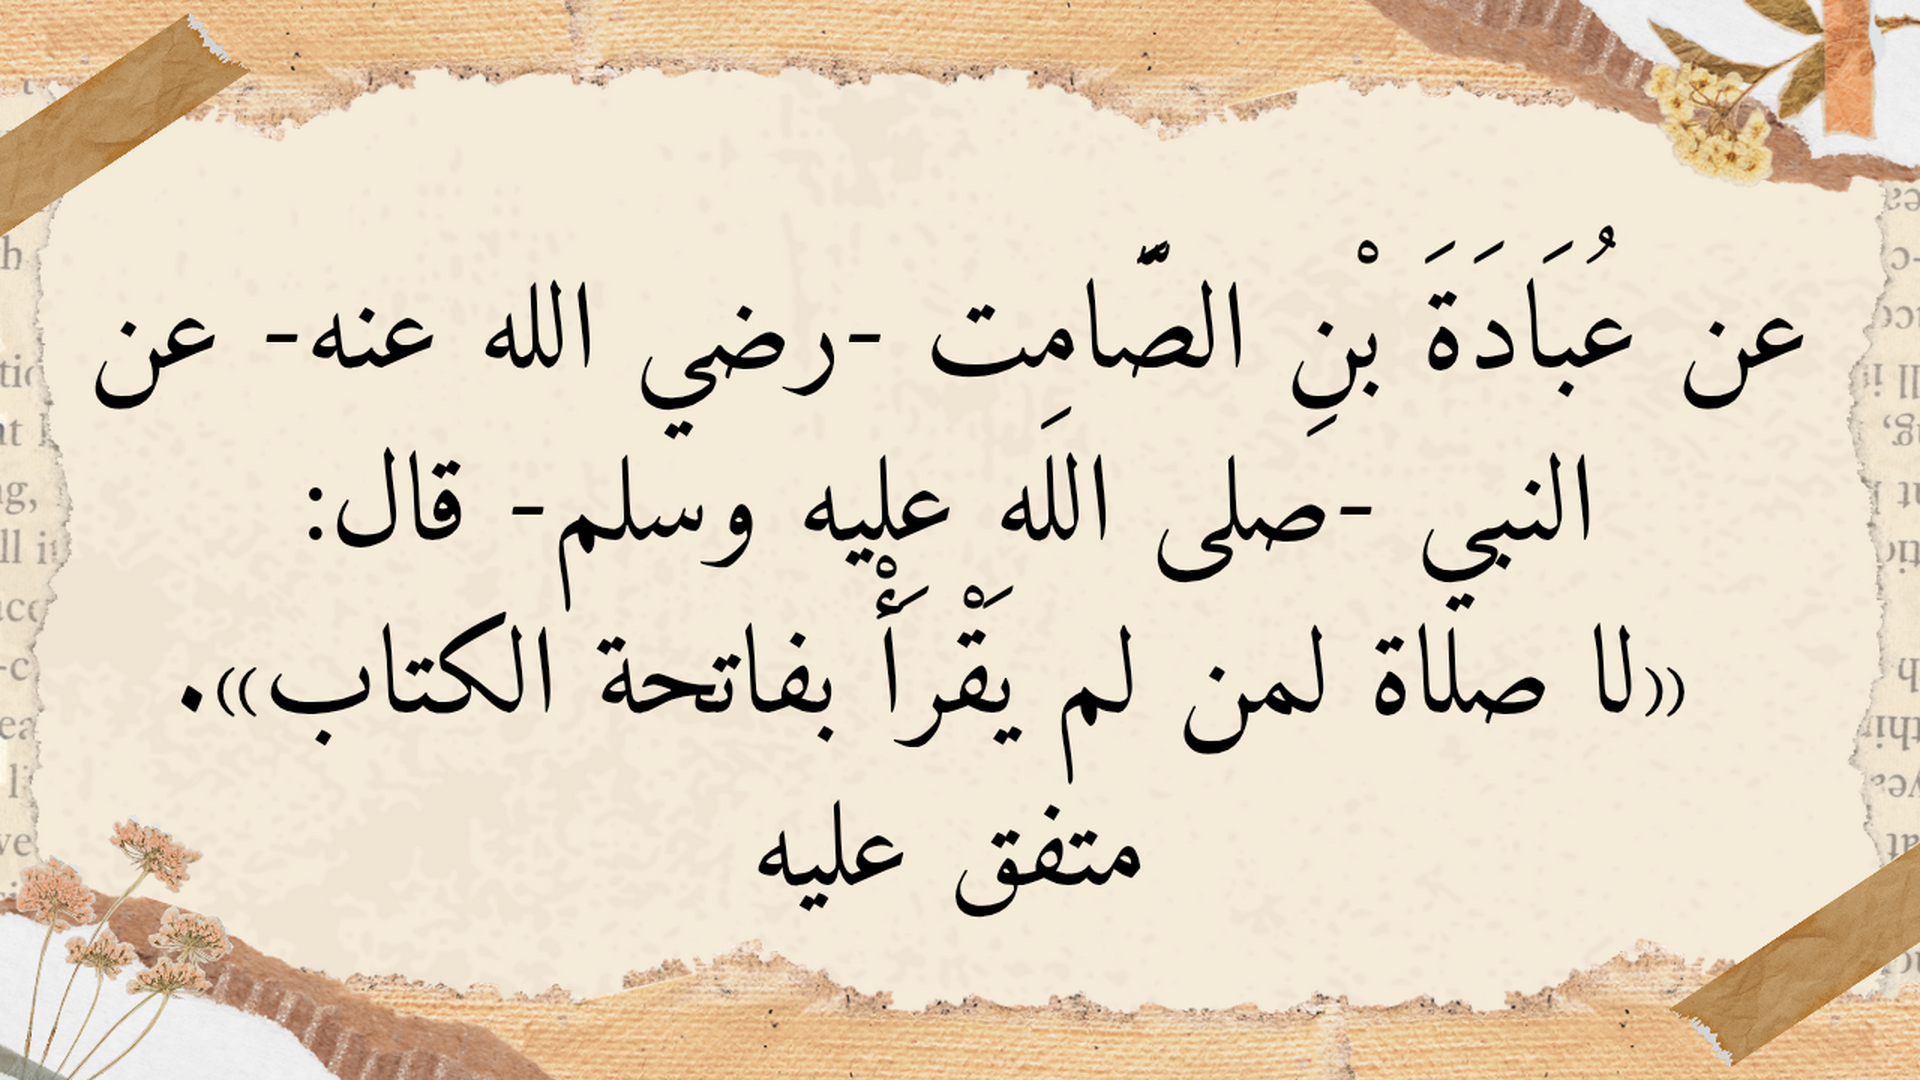 عن عُبَادَةَ بْنِ الصَّامِت -رضي الله عنه- عن
النبي -صلى الله عليه وسلم- قال:
«لا صلاة لمن لم يَقْرَأْ بفاتحة الكتاب».
متفق عليه